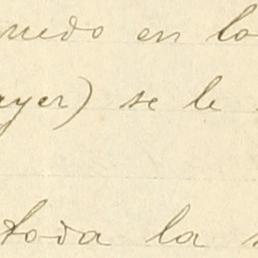 en lo
ayer) se le
toda la